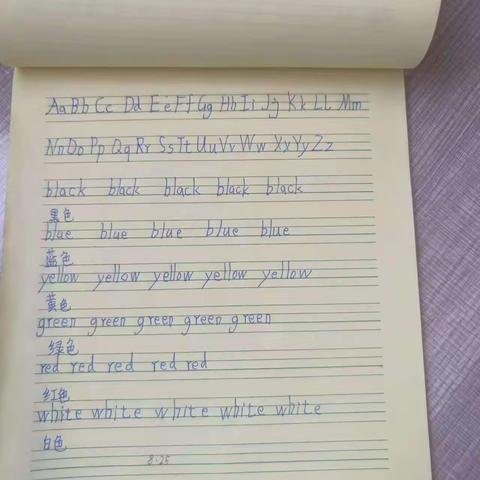 Aa Bb Cc Dd Ee Ff Gg Hh Ii Jj Kk Ll Mm
Nn Oo Pp Qq Rr Ss Tt Uu Vv Ww Xx Yy Zz
black black black black black
黑色
blue blue blue blue blue
蓝色
yellow yellow yellow yellow yellow
黄色
green green green green green
绿色
red red red red red
红色
white white white white white
白色
8.25